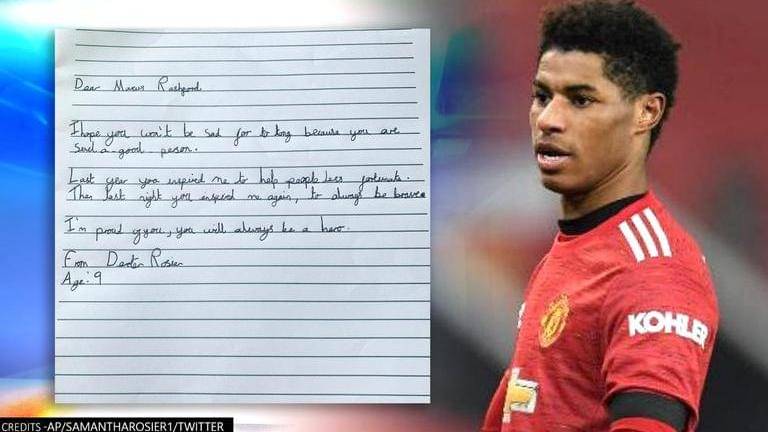 Dear Marcus Rashford
I hope you won't be sad for to long because you are
such a good person.
Last year you inspired me to help people less fortunate.
Then last night you inspired me again, to always be brave
I'm proud of you, you will always be a hero.
From Dexter Rosier
Age: 9
KOHLER
CREDITS -AP/SAMANTHAROSIER1/TWITTER